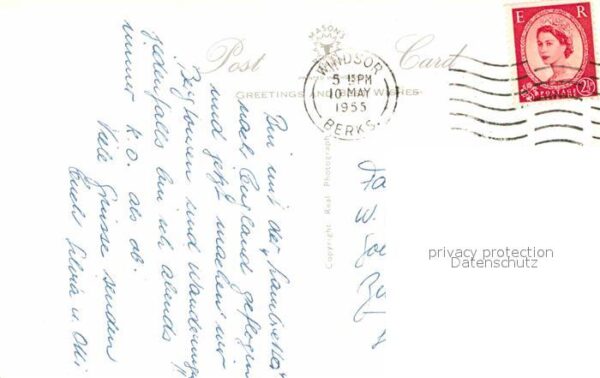 MASON'S
Post Card
GREETINGS AND BEST WISHES
WINDSOR
5 15 PM
10 MAY
1955
BERKS.
E R
POSTAGE
2½
Copyright Real Photograph
Bin mit der "Lambretta"
nach England geflogen
und jetzt machen wir
Bergtouren und Wanderungen
jedenfalls bin ich abends
immer k.o. als ob.
Viele Grüsse senden
Euch Silvia u. Otti
Fa
W.
privacy protection
Datenschutz